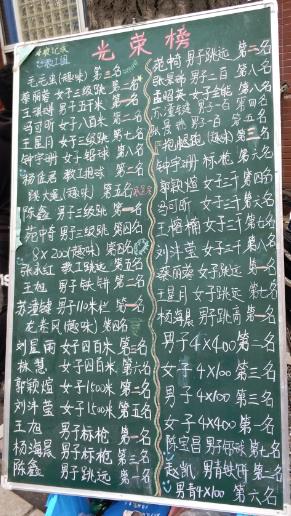 光荣榜
毛毛虫(趣味) 第三名
蔡丽蓉 女子三级跳 第二名
王琪 男子五千米 第一名
马可昕 女子八百米 第二名
王星月 女子三级跳 第七名
钟宇洲 女子铅球 第八名
杨佳君 教工铅球 第一名
跳大绳(趣味) 第五名
陈鑫 男子三级跳 第一名
苑中奇 男子三级跳 第四名
8×200(趣味) 第四名
张永红 教工跳远 第五名
王旭 男子铁饼 第二名
苏潼键 男子110米栏 第一名
龙卷风(趣味) 第四名
刘星雨 女子四百米 第三名
林慧 女子四百米 第六名
郭颖煊 女子1500米 第二名
刘斗莹 女子1500米 第五名
王旭 男子标枪 第一名
杨海晨 男子标枪 第三名
陈鑫 男子跳远 第一名
男子跳远 第三名
男子二百 第八名
孟昭英 女子全能 第八名
苏潼键 男子二百 第四名
第八名
(趣味) 第三名
钟宇洲 标枪 第六名
郭颖煊 女子三千 第四名
马可昕 女子三千 第六名
王榕楠 女子三千 第七名
刘斗莹 女子三千 第八名
蔡丽蓉 女子跳远 第一名
王星月 女子跳远 第七名
杨海晨 男子跳高 第一名
男子4×400 第二名
女子4×100 第三名
男子4×100 第三名
女子4×400 第一名
陈宝昌 男子铅球 第七名
赵凯 男青铁饼 第二名
男青4×100 第六名